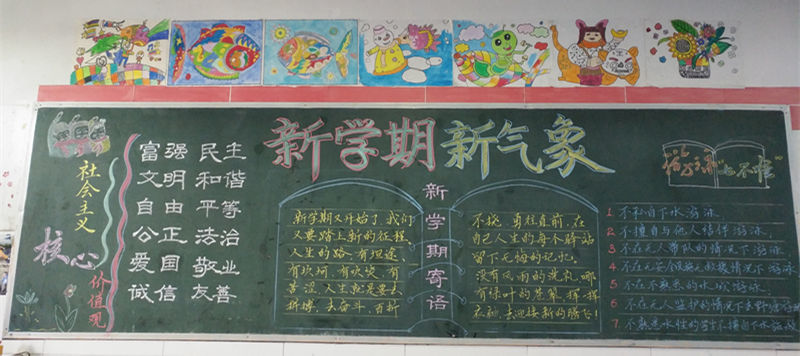 社会主义
核心
价值观
富强 民主
文明 和谐
自由 平等
公正 法治
爱国 敬业
诚信 友善
新学期新气象
新学期寄语
新学期又开始了,我们
又要踏上新的征程.
人生的路,有坦途,
有坎坷,有欢笑,有
苦涩,人生就是要去
拼搏,去奋斗,百折
不挠,勇往直前,在
自己人生的每个驿站
留下无悔的记忆.
没有风雨的洗礼,哪
有绿叶的苍翠,挥挥
衣袖,去迎接新的腾飞!
"七不准"
1 不私自下水游泳.
2. 不擅自与他人结伴游泳.
3. 不在无人带队的情况下游泳.
4. 不在无安全设施无救援情况下游泳
5. 不在不熟悉的水域游泳.
6 不在无人监护的情况下去野
7. 不熟悉水性的学生不擅自下水施救